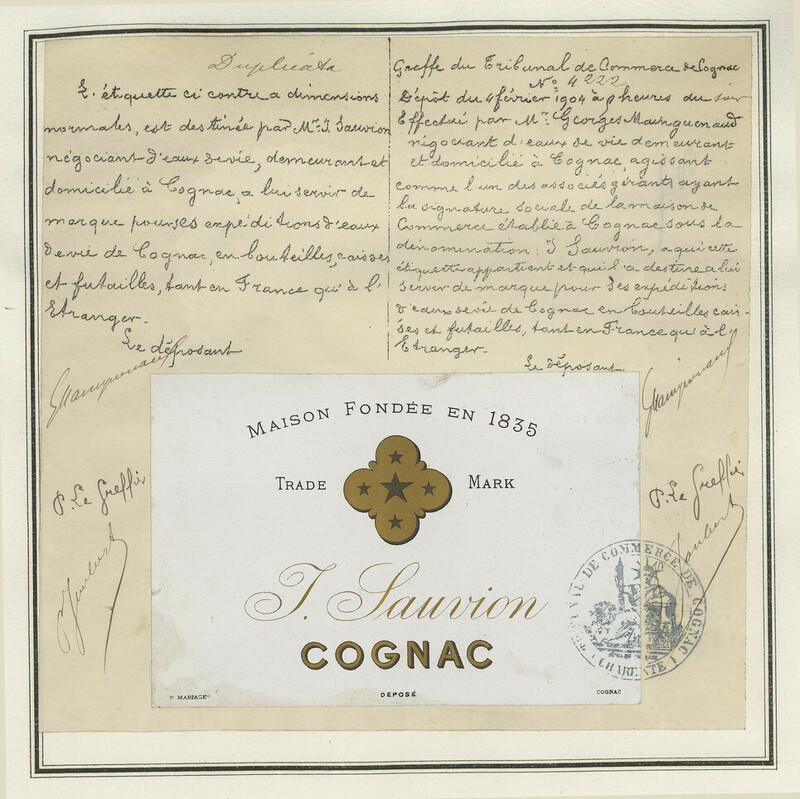 Duplicata
L'étiquette ci contre a dimensions
normales, est destinée par Mr. J. Sauvion
négociant d'eaux de vie, demeurant et
domicilié à Cognac, a lui servir de
marque pour ses expéditions d'eaux
de vie de Cognac, en bouteilles, caisses
et futailles, tant en France qu'à l'
Etranger.
Le déposant
P. Le Greffier
Greffe du Tribunal de Commerce de Cognac
No. 4222
Dépôt du 4 février 1904 à 2 heures du soir
Effectué par Mr. Georges Mainguenaud
négociant d'eaux de vie demeurant
et domicilié à Cognac, agissant
comme l'un des associés gérants ayant
la signature sociale de la maison de
Commerce établie à Cognac sous la
dénomination: J Sauvion, a qui cette
étiquette appartient et qui l'a destine a lui
servir de marque pour ses expéditions
d'eaux de vie de Cognac en bouteilles cais-
ses et futailles, tant en France qu'à l'
Etranger.
Le déposant
P. Le Greffier
MAISON FONDÉE EN 1835
TRADE MARK
J. Sauvion
COGNAC
P. MARIAGE DÉPOSÉ COGNAC
TRIBUNAL DE COMMERCE DE COGNAC
(CHARENTE)